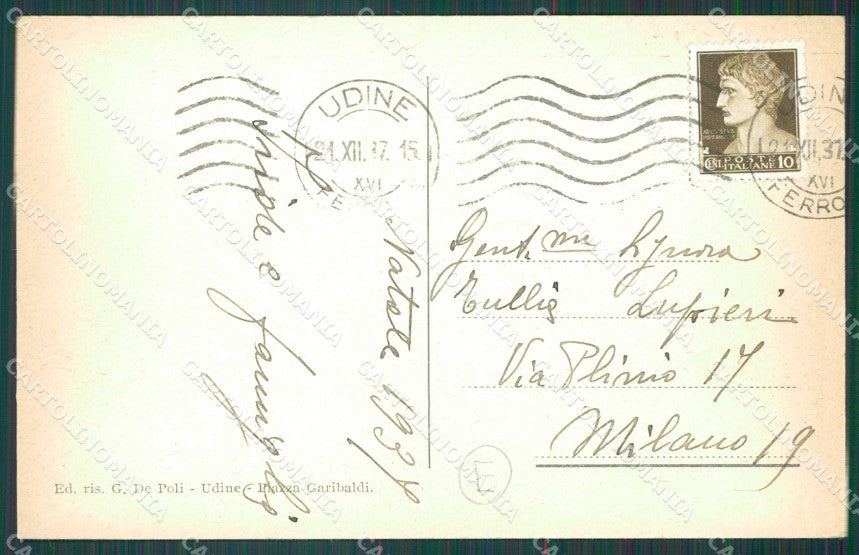 UDINE
21.XII.37. 15
XVI
FERRO
UDIN
21.XII.37.
XVI
FERRO
POSTE
ITALIANE 10
Natale 1937
e famiglia
Gent.me Signora
Tullia Lupieri
Via Plinio 17
Milano 19
Ed. ris. G. De Poli - Udine - Piazza Garibaldi.
CARTOLINOMANIA